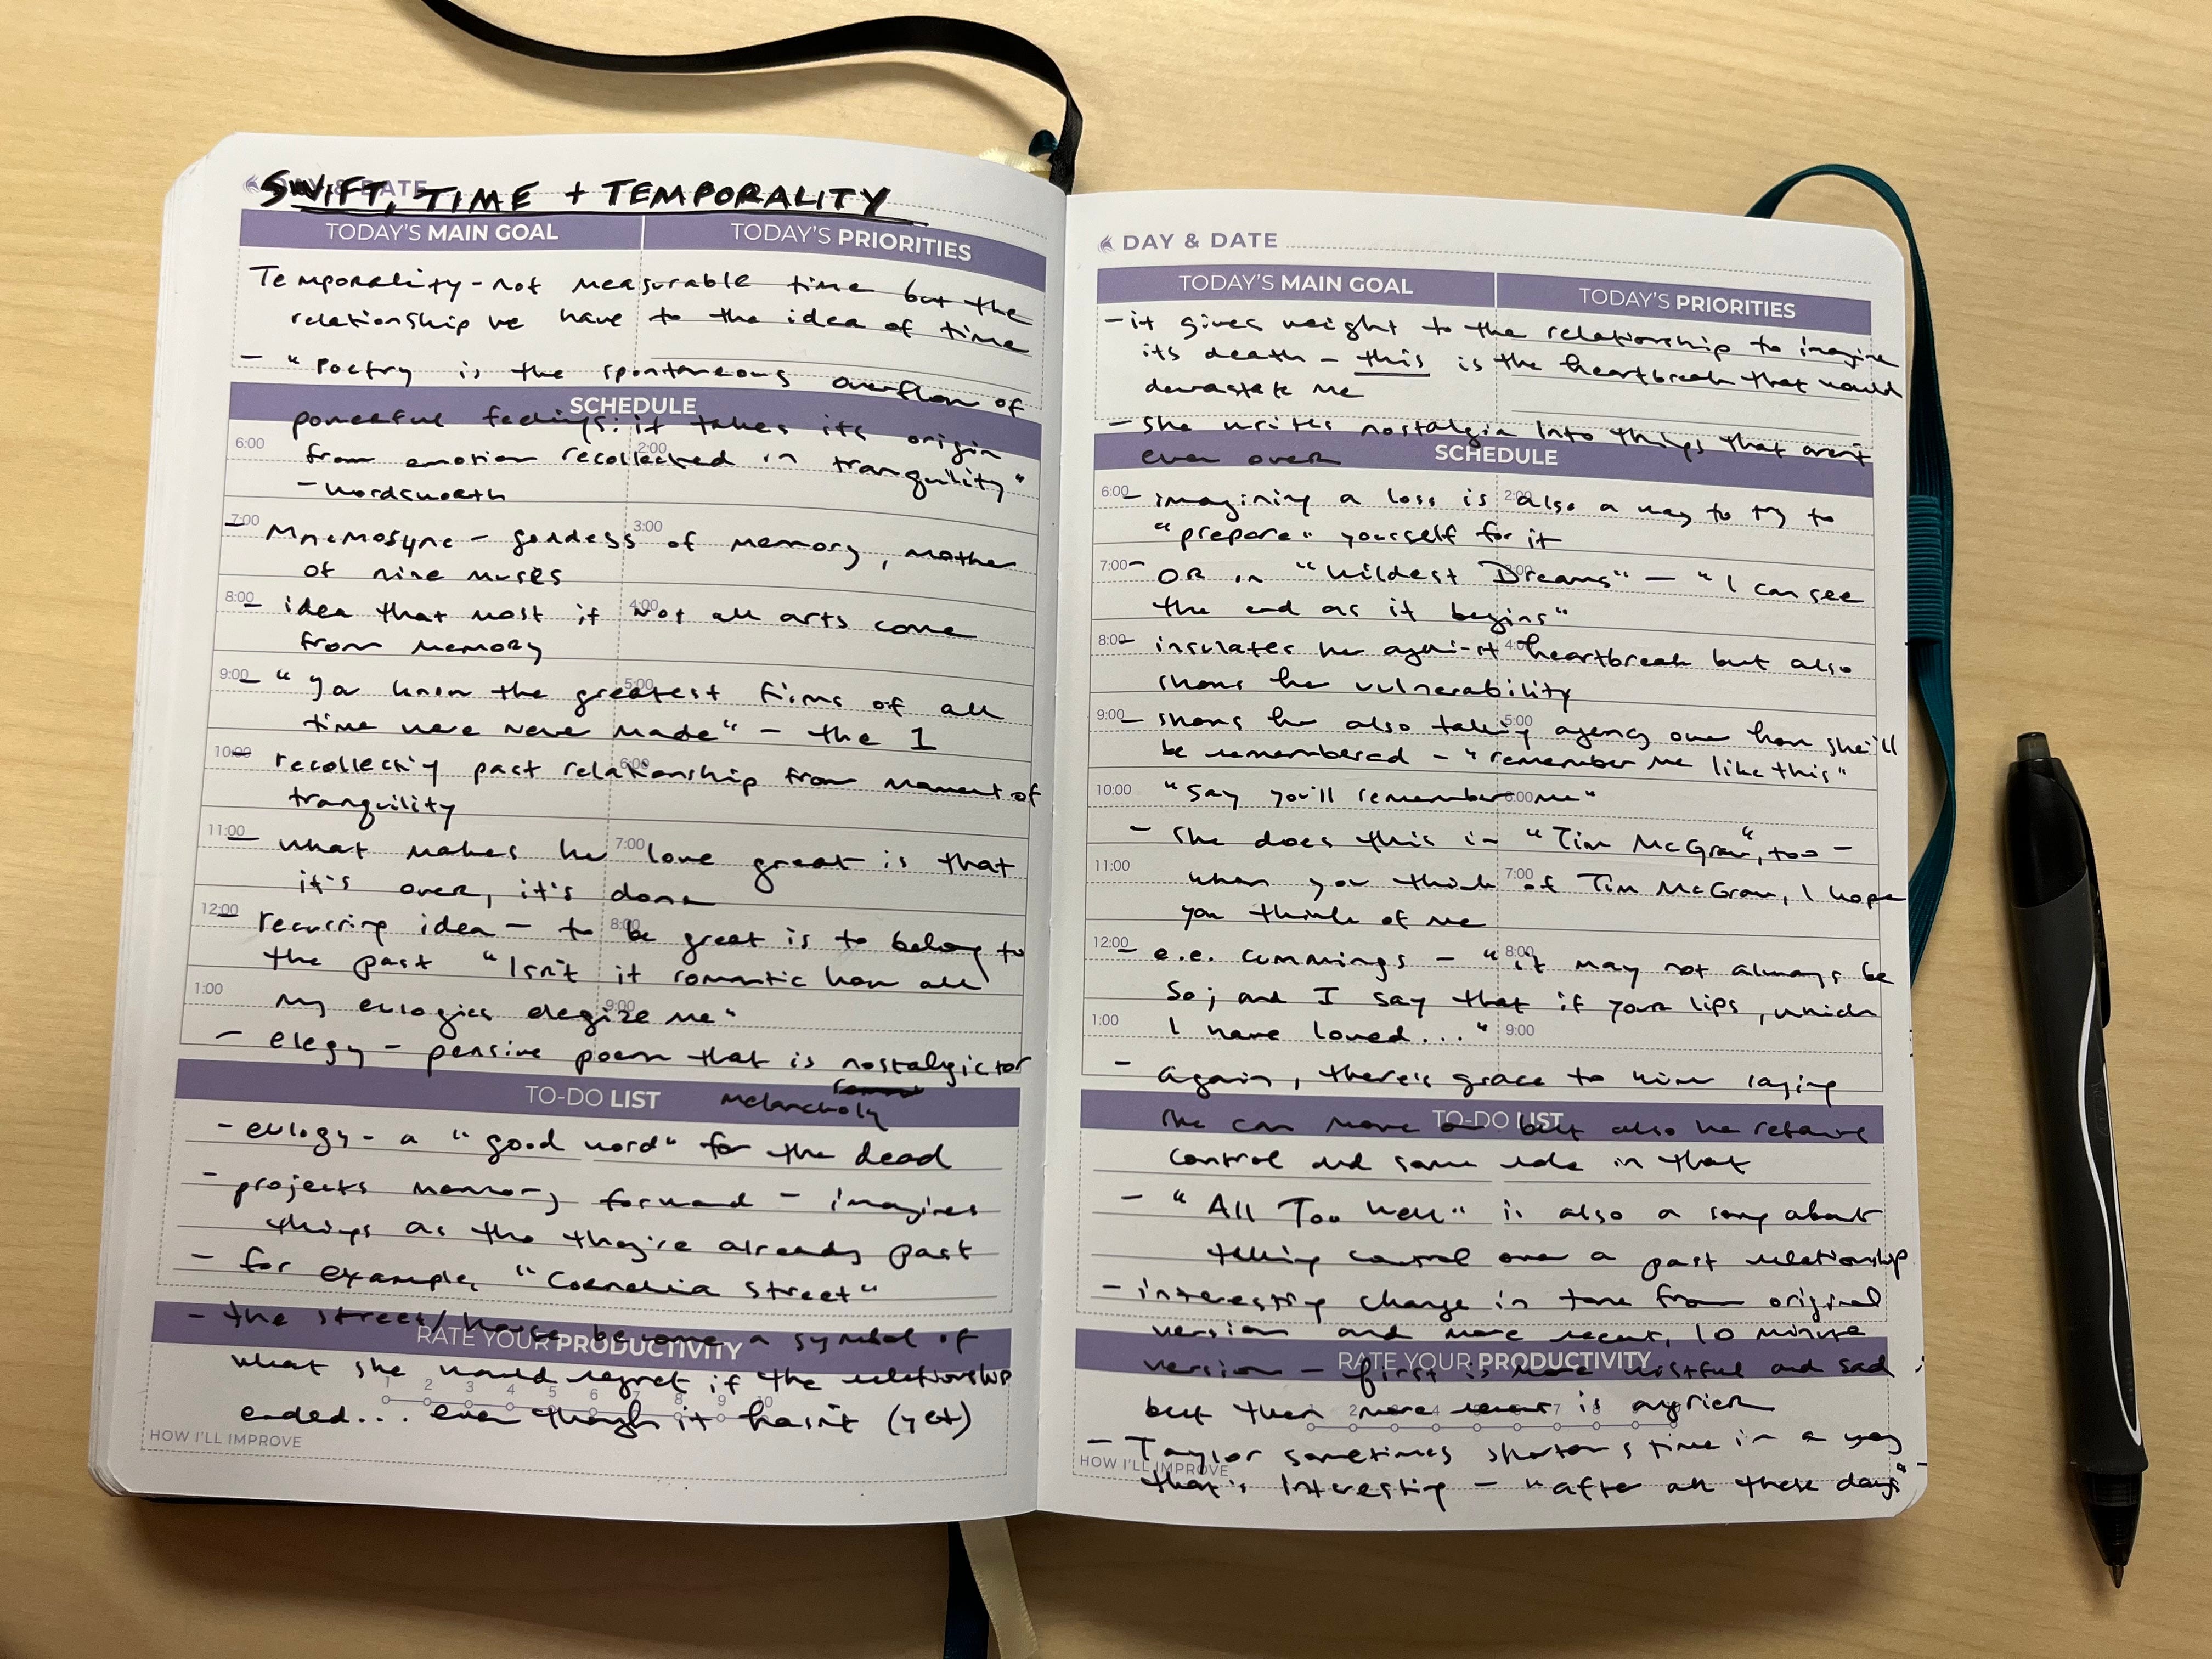 DAY & DATE
SWIFT, TIME + TEMPORALITY
TODAY'S MAIN GOAL
TODAY'S PRIORITIES
Temporality - not measurable time but the
relationship we have to the idea of time
- "Poetry is the spontaneous overflow of
SCHEDULE
powerful feelings: it takes its origin
6:00
2:00
from emotion recollected in tranquility"
- Wordsworth
7:00
3:00
- Mnemosyne - goddess of memory, mother
of nine muses
8:00
4:00
- idea that most if not all arts come
from memory
9:00
5:00
- "You know the greatest films of all
time were never made" - the 1
10:00
6:00
- recollecting past relationship from moment of
tranquility
11:00
7:00
- what makes her love great is that
it's over, it's done
12:00
8:00
- recurring idea - to be great is to belong to
the past "Isn't it romantic how all
1:00
9:00
my eulogies elegize me"
- elegy - pensive poem that is nostalgic or
TO-DO LIST
melancholy
- eulogy - a "good word" for the dead
- projects memory forward - imagines
things as tho they're already past
- for example, "Cornelia Street"
- the street/house become a symbol of
RATE YOUR PRODUCTIVITY
what she would regret if the relationship
1 2 3 4 5 6 7 8 9 10
ended... even though it hasn't (yet)
HOW I'LL IMPROVE
DAY & DATE
TODAY'S MAIN GOAL
TODAY'S PRIORITIES
- it gives weight to the relationship to imagine
its death - this is the heartbreak that would
devastate me
- She writes nostalgia into things that aren't
even over
SCHEDULE
6:00
2:00
- imagining a loss is also a way to try to
"prepare" yourself for it
7:00
3:00
- OR in "Wildest Dreams" - "I can see
the end as it begins"
8:00
4:00
- insulates her against heartbreak but also
shows her vulnerability
9:00
5:00
- shows her also taking agency over how she'll
be remembered - "remember me like this"
10:00
6:00
"Say you'll remember me"
- She does this in "Tim McGraw", too -
11:00
7:00
when you think of Tim McGraw, I hope
you think of me
12:00
8:00
- e.e. cummings - "it may not always be
so; and I say that if your lips, which
1:00
9:00
I have loved..."
- again, there's grace to him saying
TO-DO LIST
she can move on but also he retains
control and some role in that
- "All Too Well" is also a song about
telling control over a past relationship
- interesting change in tone from original
version and more recent, 10 minute
RATE YOUR PRODUCTIVITY
version - first is more wistful and sad
but then more recent is angrier
- Taylor sometimes shortens time in a way
HOW I'LL IMPROVE
that's interesting - "after all these days"